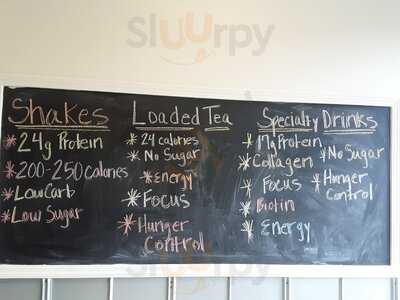 SLUURPY
Shakes
* 24g Protein
* 200-250 calories
* Low Carb
* Low Sugar
Loaded Tea
* 24 calories
* No Sugar
* Energy
* Focus
* Hunger
Control
Specialty Drinks
* 17g Protein
* Collagen
* Focus
* Biotin
* Energy
* No Sugar
* Hunger
Control
sluurpy